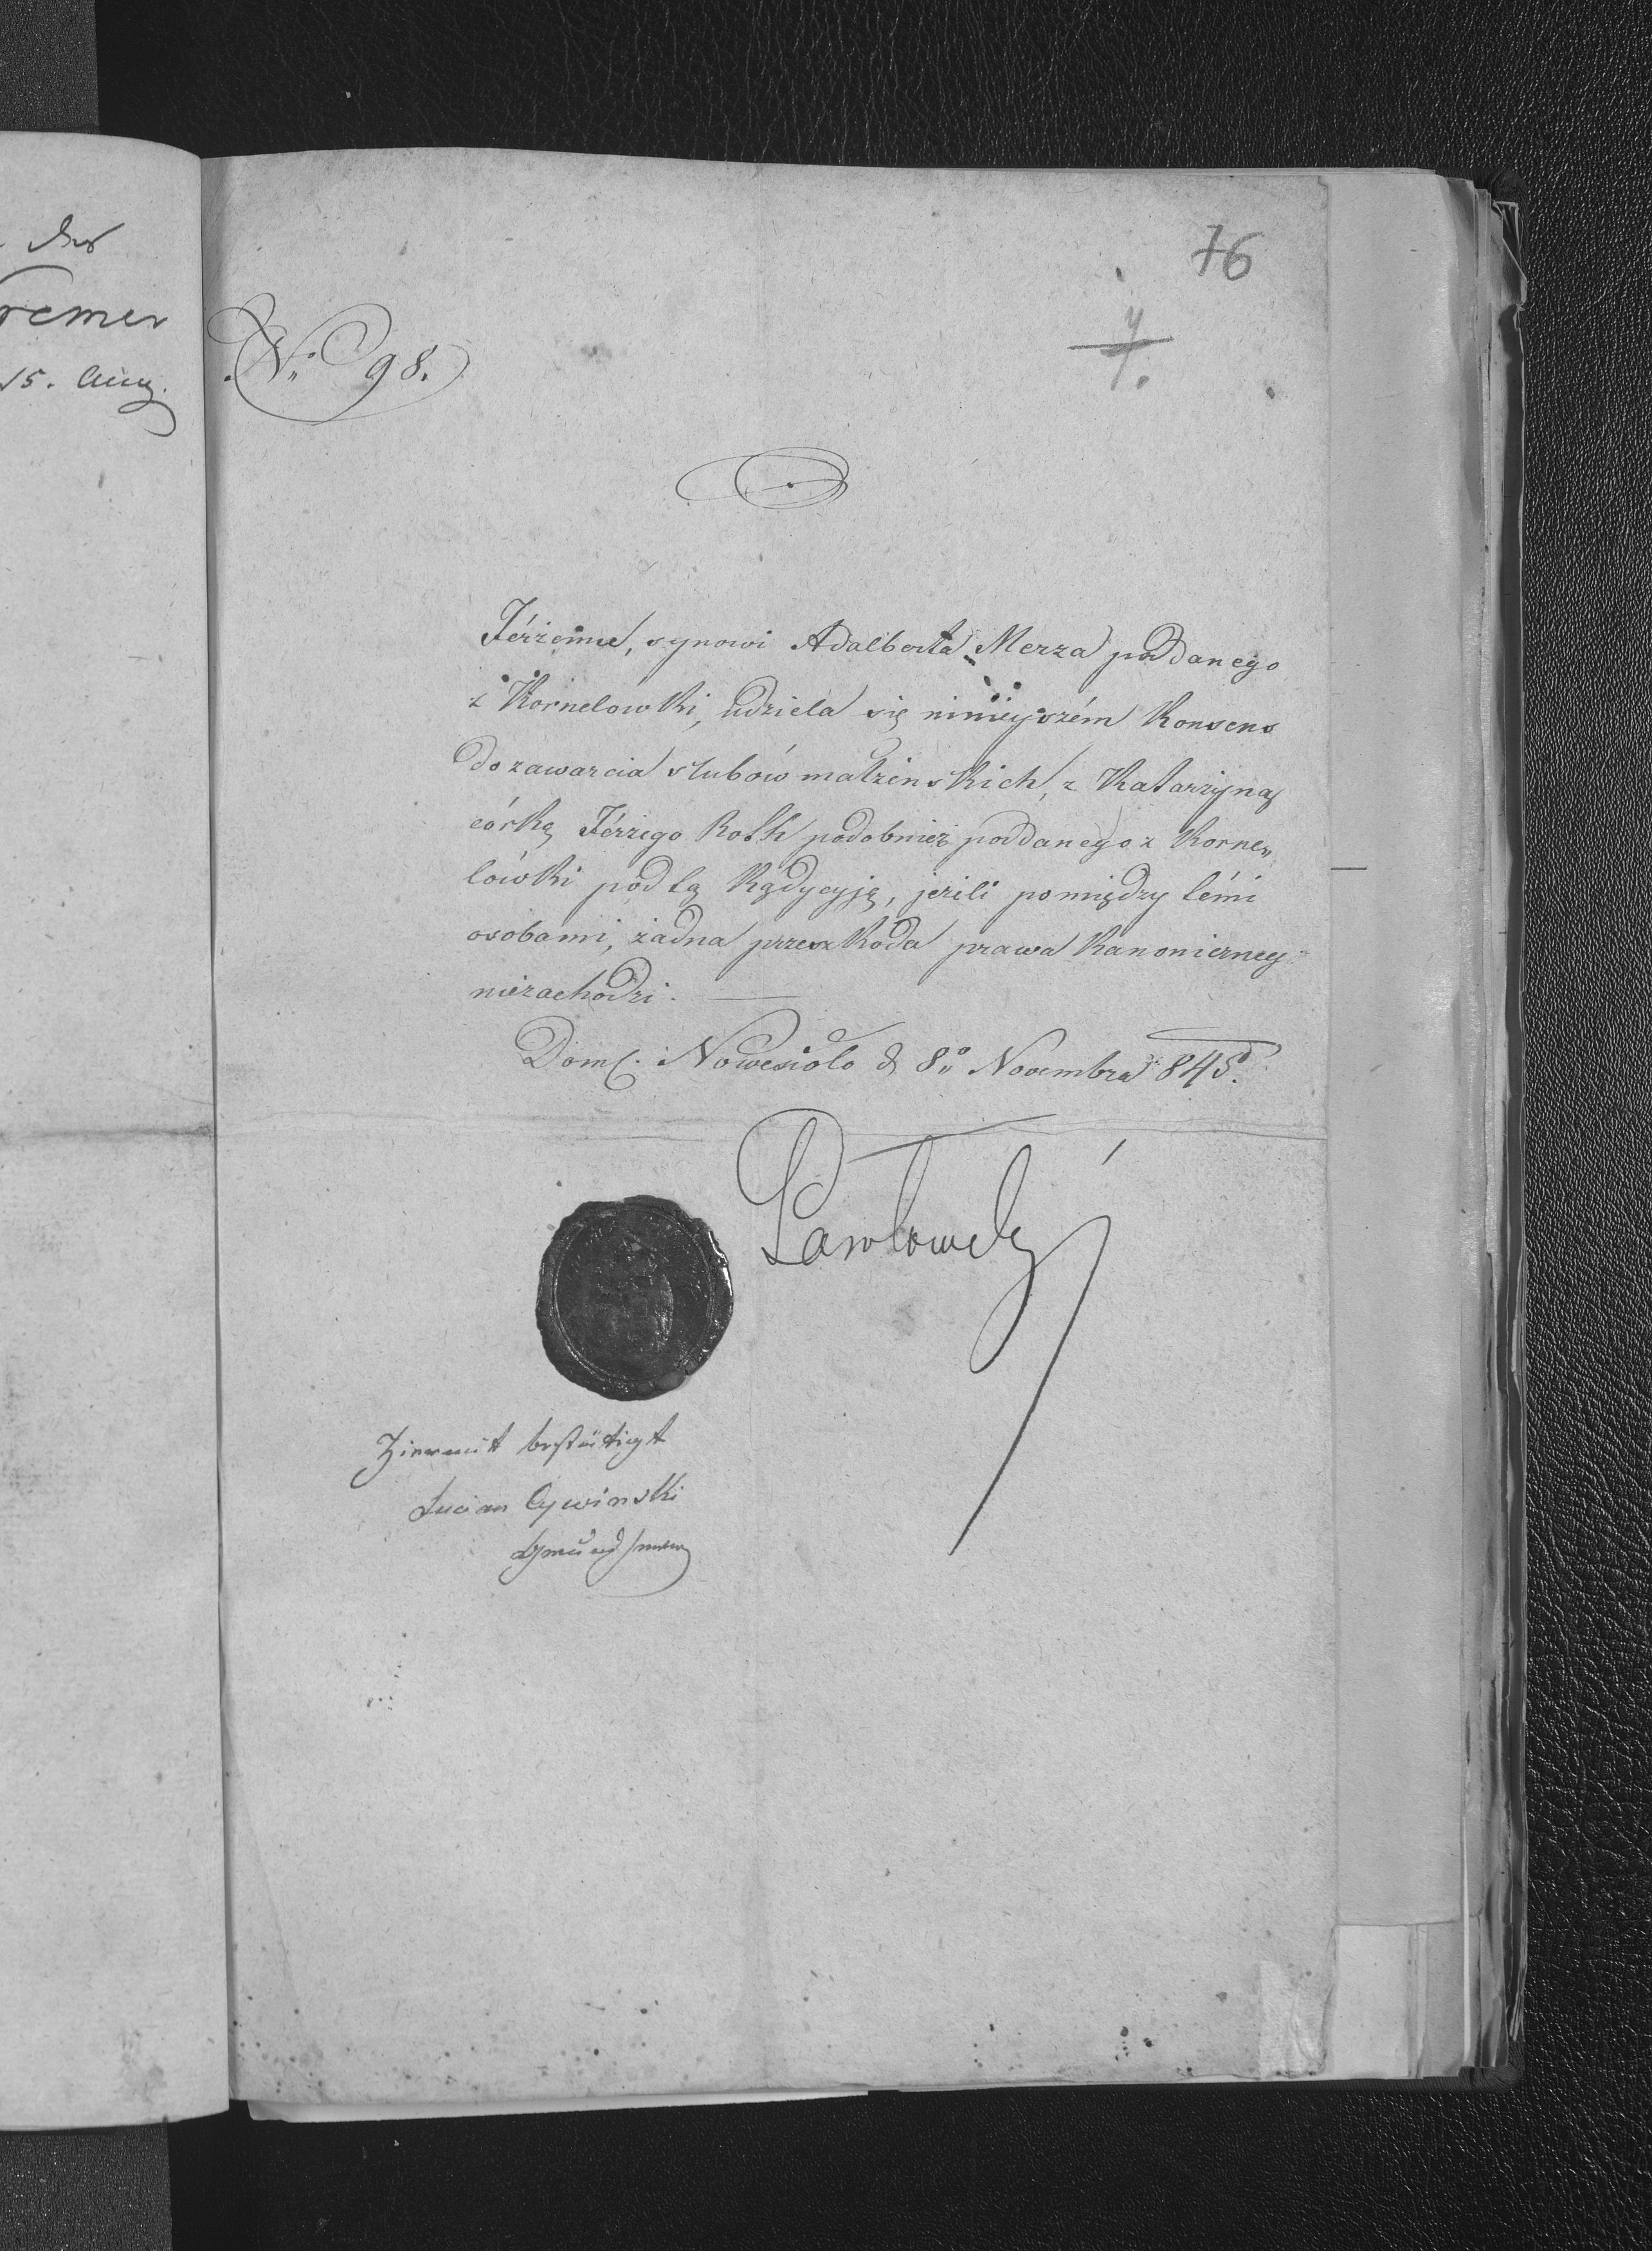 des
remer
15. Aug.
76
7.
No 98.
Jérżemu, synowi Adalberta Merza poddanego
z Kornelowki, udziela się niniejszém Konsens
do zawarcia slubów małzenskich, z Katarzyną
córką Jérzego Roth podobnież poddanego z Korne„
lówki pod tą Kądycyją, jezili pomiędzy témi
osobami, żadna przeszkoda prawa Kanonicznego
niezachodzi.
Dom. Nowesioło d 8o Novembra 845.
Hiermit bestätigt
Lucian Cywinski